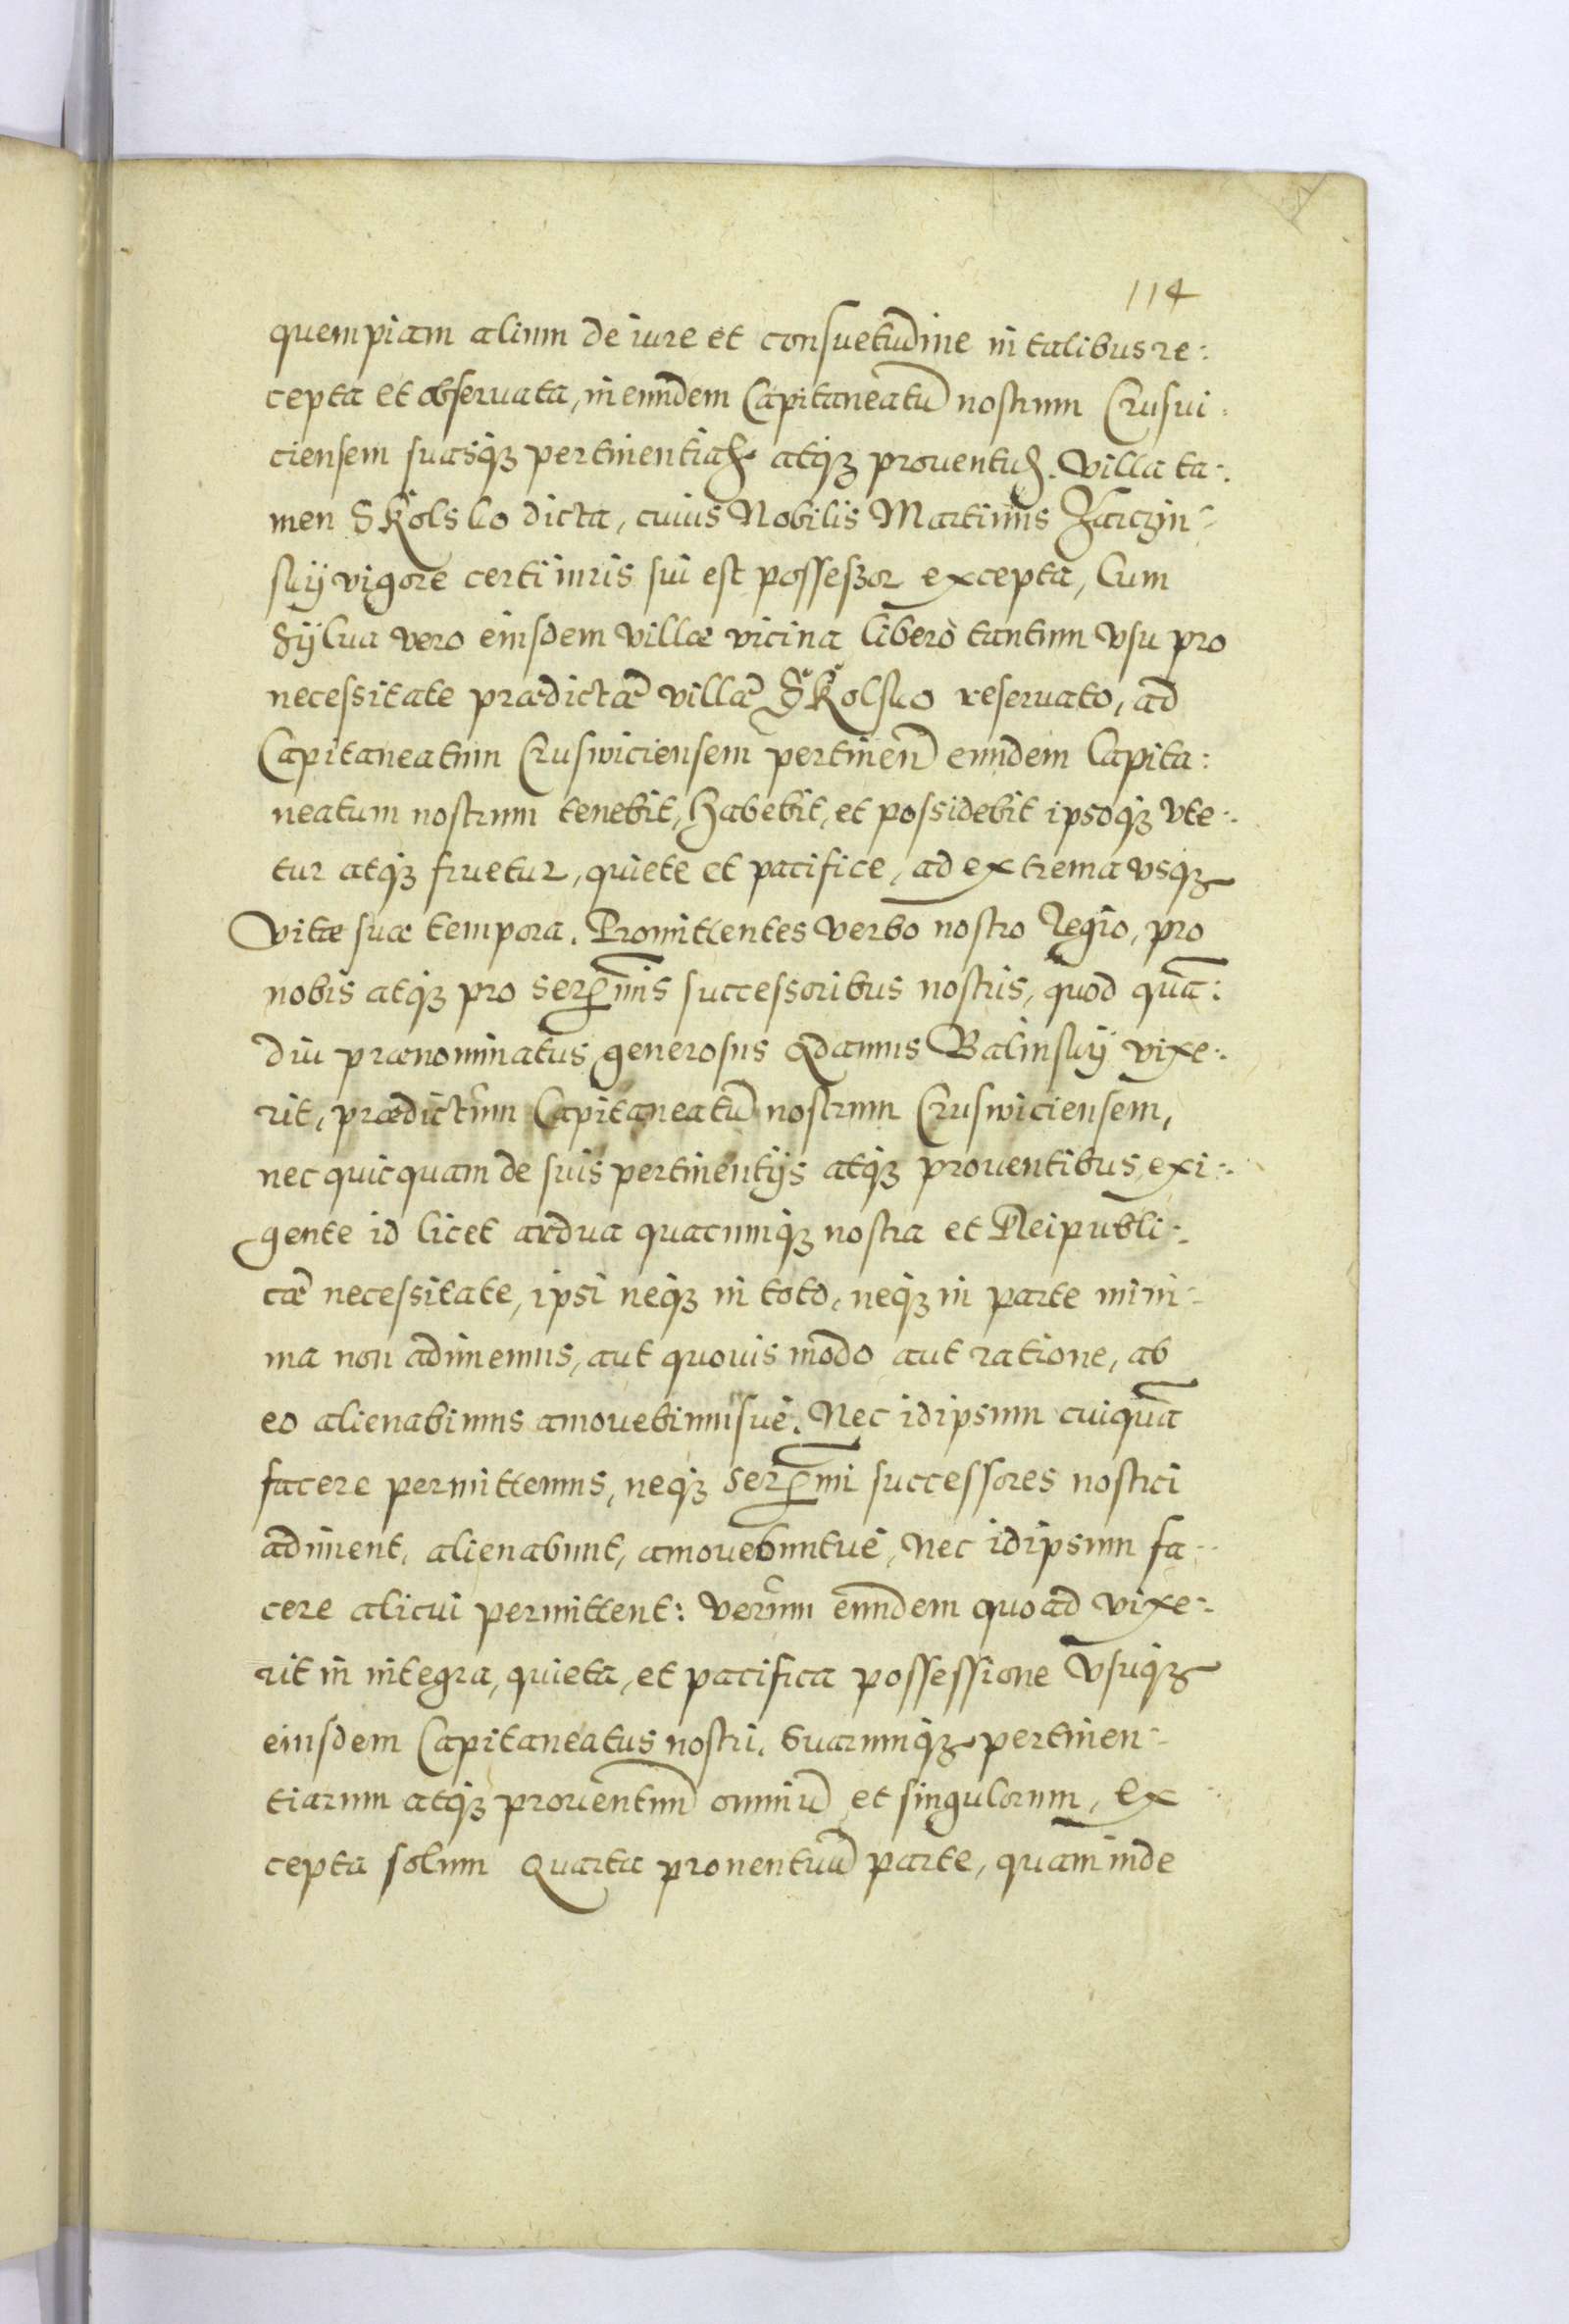 114
quempiam alium de iure et consuetudine in talibus re:
cepta et obseruata, in eundem Capitaneatū nostrum Crusui:
ciensem suasq꜄ pertinentias atq꜄ prouentus. Villa ta:
men Skolsko dicta, cuius Nobilis Martinus Zarczin:
skÿ vigore certi iuris sui est possessor excepta, Cum
Sÿlua vero eiusdem villæ vicina liberò tantum vsu pro
necessitate prædictæ villæ Skolsko reseruato, ad
Capitaneatum Cruswiciensem pertinen̄ eundem Capita:
neatum nostrum tenebit, habebit, et possidebit ipsoq꜄ vte:
tur atq꜄ fruetur, quiete et pacifice, ad extrema vsq꜄
vitæ suæ tempora. Promittentes verbo nostro Regio, pro
nobis atq꜄ pro Serēmis successoribus nostris, quod quā:
diu prænominatus generosus Adamus Balinskÿ vixe:
rit, prædictum Capitaneatū nostrum Cruswiciensem,
nec quicquam de suis pertinentijs atq꜄ prouentibus, exi:
gente id licet ardua quacumq꜄ nostra et Reipubli:
cæ necessitate, ipsi neq꜄ in toto, neq꜄ in parte mini:
ma non adimemus, aut quouis modo aut ratione, ab
eo alienabimus amouebimusue. Nec idipsum cuiquā
facere permittemus, neq꜄ Serēmi successores nostri
adiment, alienabunt, amouebuntue, Nec idipsum fa:
cere alicui permittent: verum eundem quoad vixe:
rit in integra, quieta, et pacifica possessione vsuq꜄
eiusdem Capitaneatus nostri. Suarumq꜄ pertinen:
tiarum atq꜄ prouentuum omniū et singulorum, Ex
cepta solum Quarta prouentuū parte, quam inde